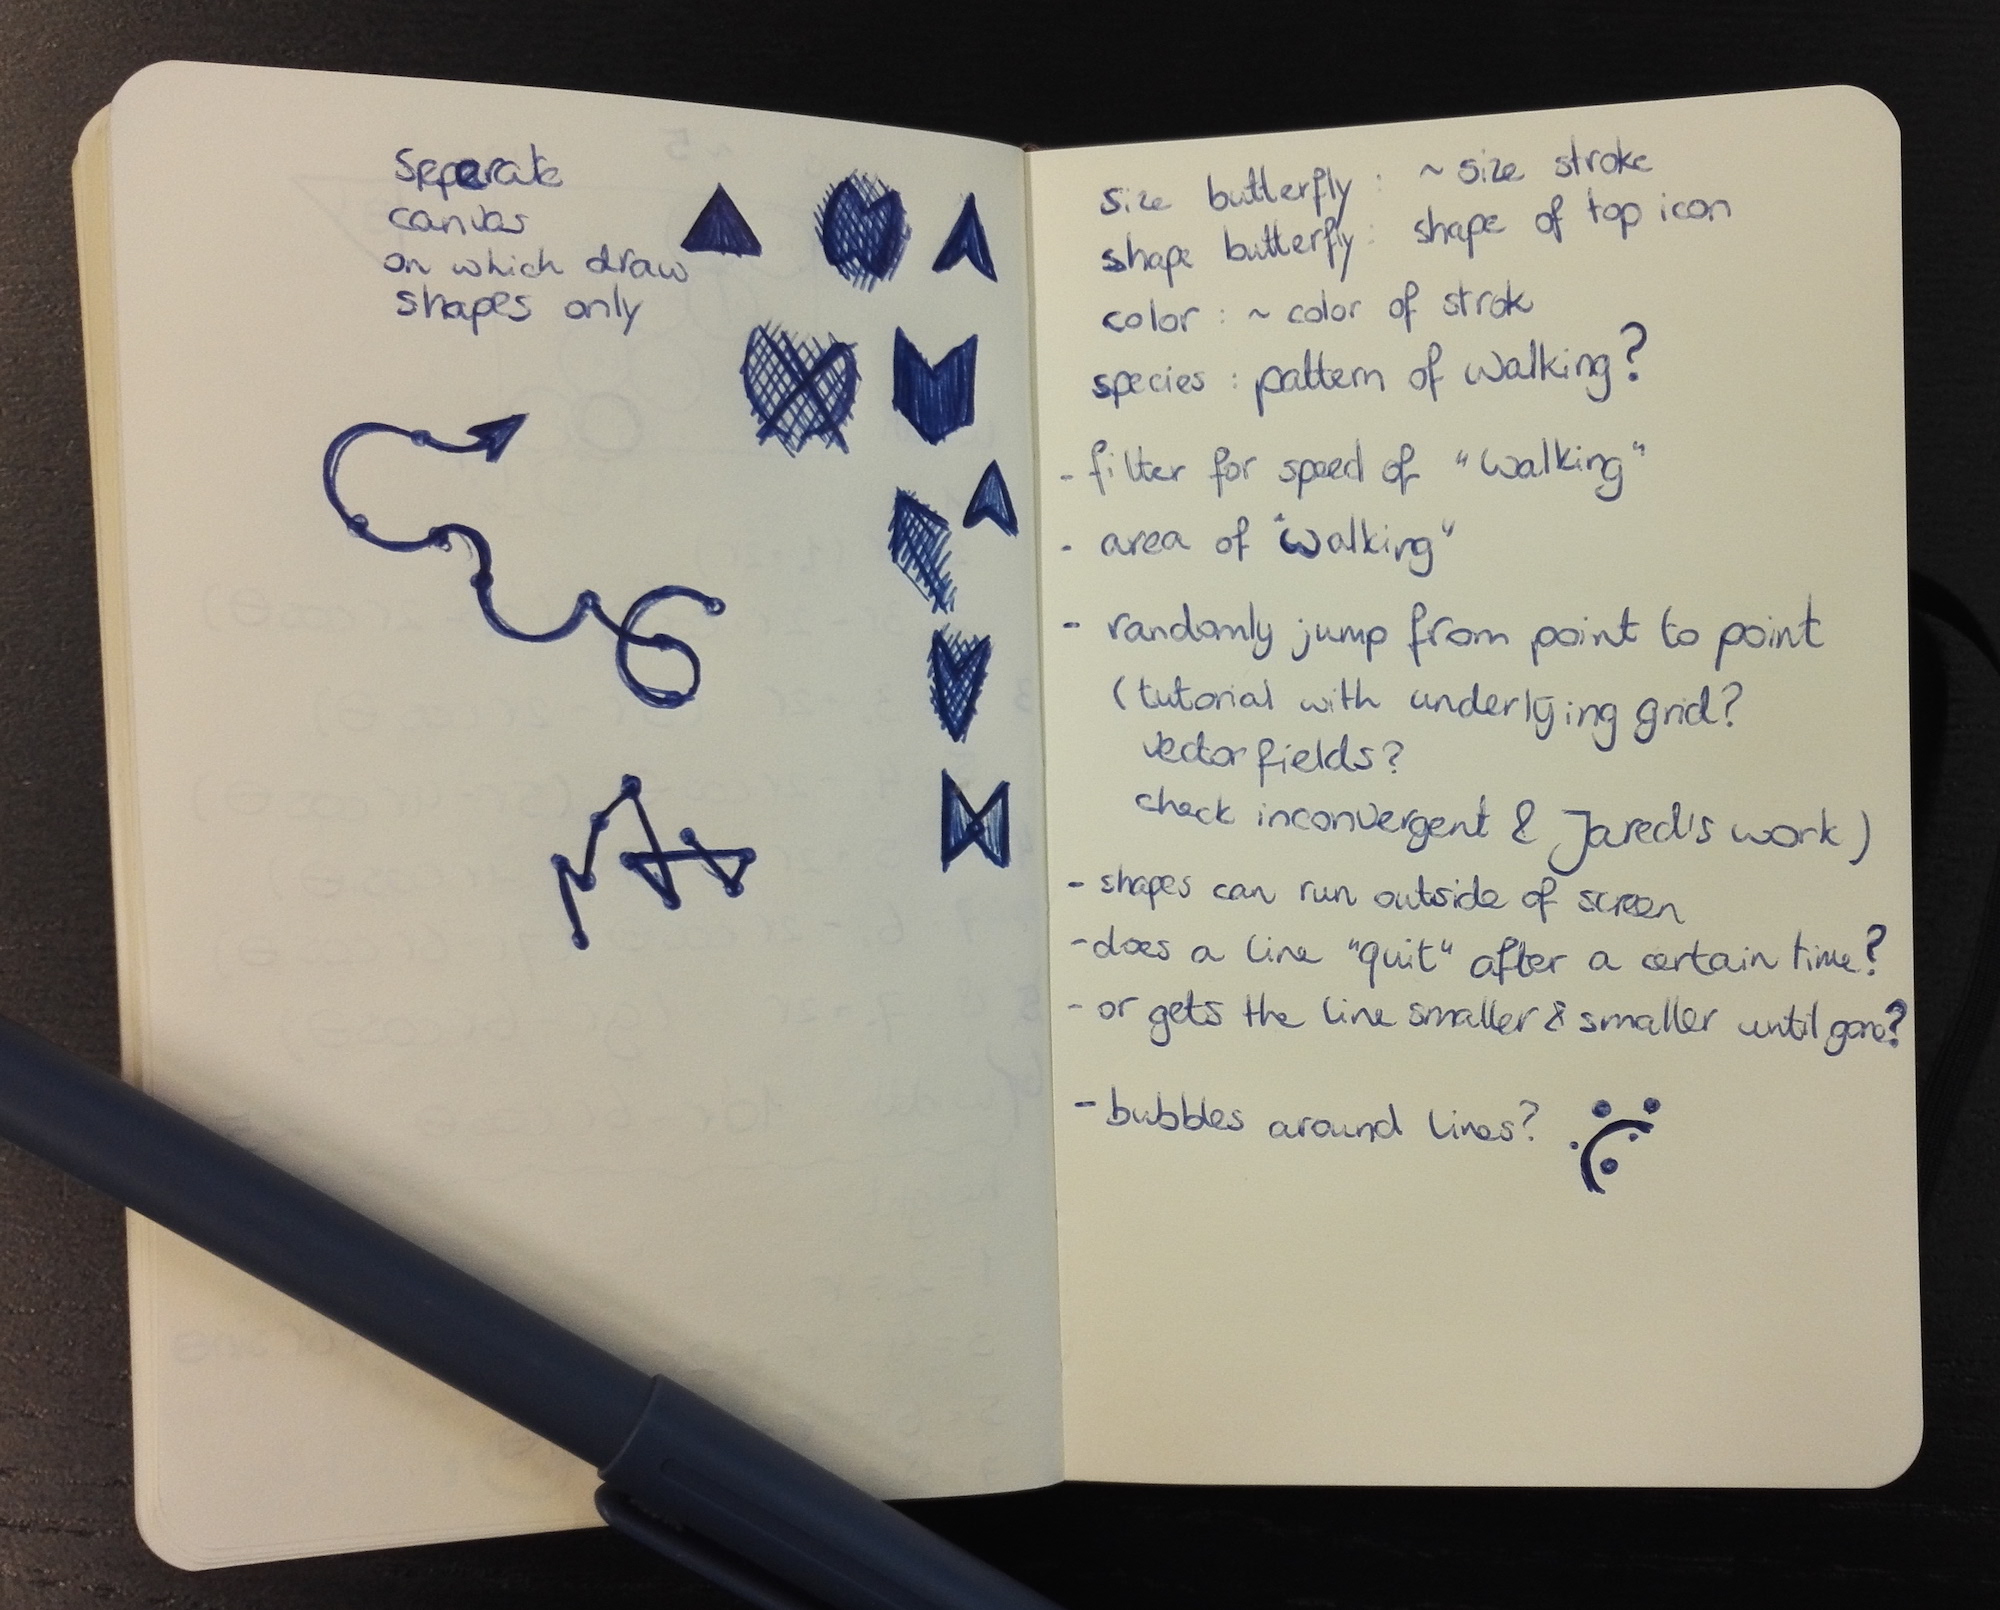 Seperate
canvas
on which draw
shapes only
size butterfly : ~ size stroke
shape butterfly : shape of top icon
color : ~ color of strok
species : pattern of walking?
- filter for speed of "walking"
- area of "walking"
- randomly jump from point to point
(tutorial with underlying grid?
vector fields?
check inconvergent & Jared's work)
- shapes can run outside of screen
- does a line "quit" after a certain time?
- or gets the line smaller & smaller until gone?
- bubbles around lines?